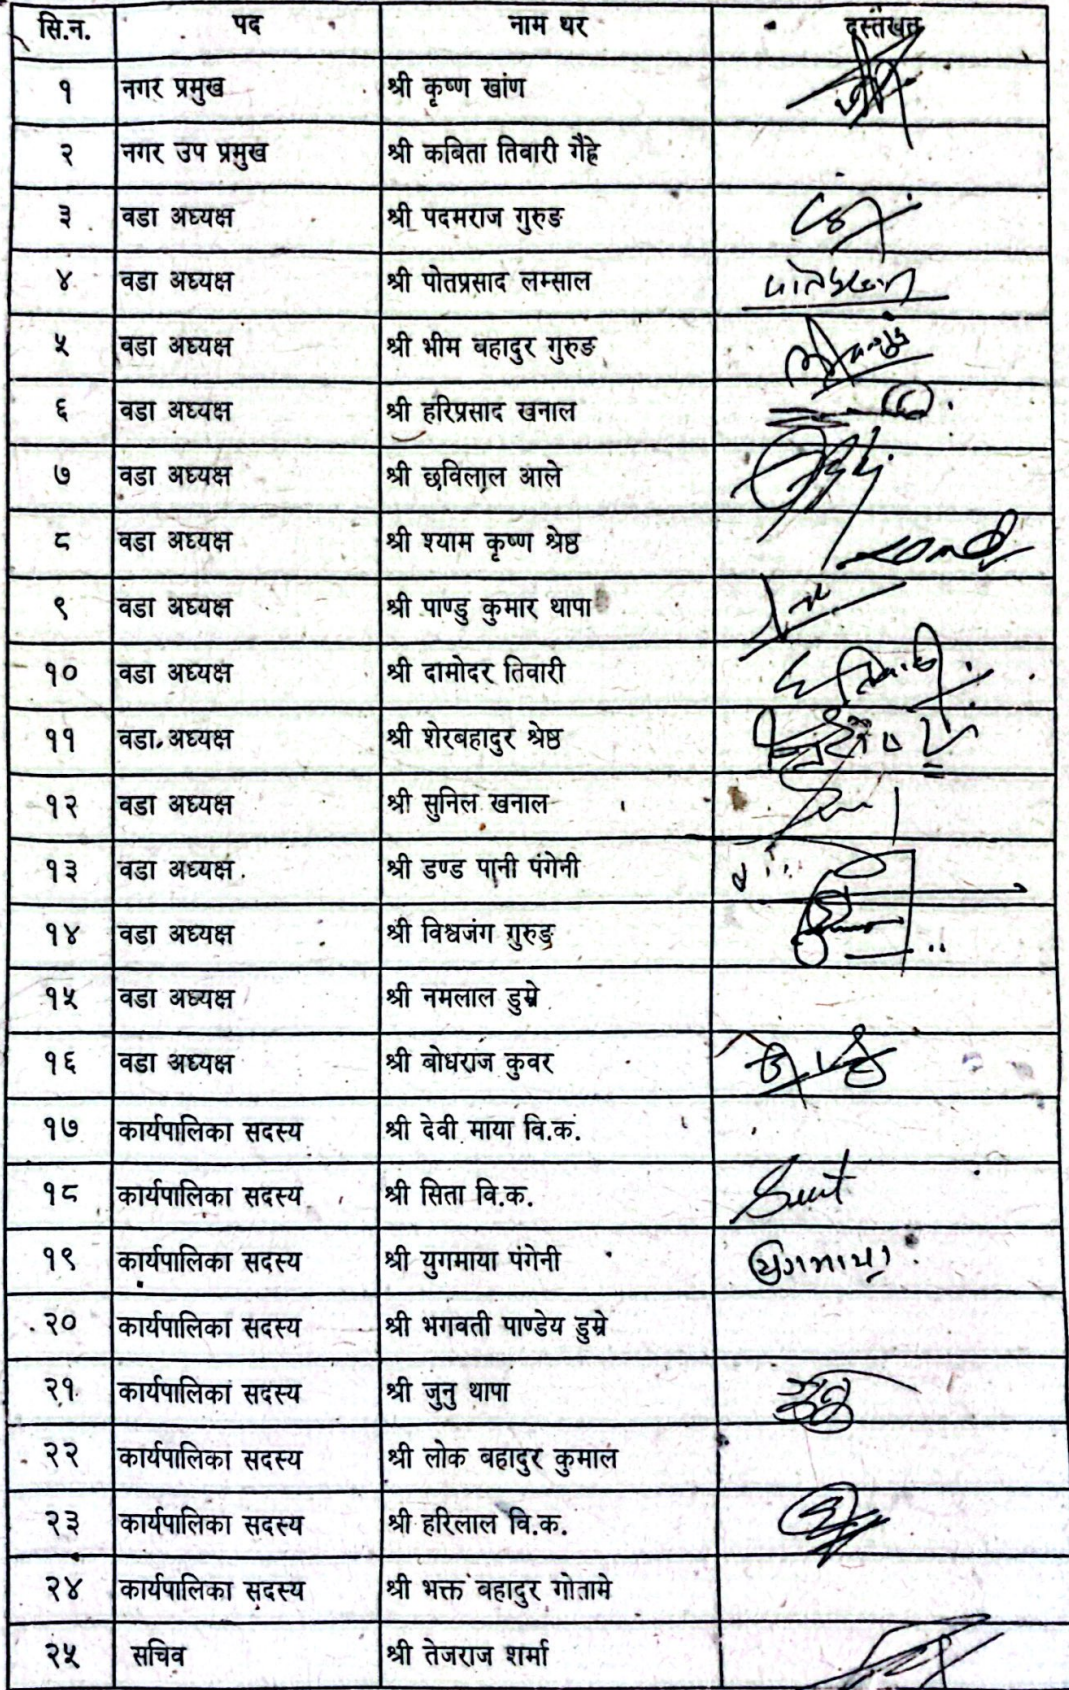 सि.न. पद नाम थर दस्तखत
१ नगर प्रमुख श्री कृष्ण खांण
२ नगर उप प्रमुख श्री कबिता तिवारी गैह्रे
३ वडा अध्यक्ष श्री पदमराज गुरुङ
४ वडा अध्यक्ष श्री पोतप्रसाद लम्साल
५ वडा अध्यक्ष श्री भीम बहादुर गुरुङ
६ वडा अध्यक्ष श्री हरिप्रसाद खनाल
७ वडा अध्यक्ष श्री छविलाल आले
८ वडा अध्यक्ष श्री श्याम कृष्ण श्रेष्ठ
९ वडा अध्यक्ष श्री पाण्डु कुमार थापा
१० वडा अध्यक्ष श्री दामोदर तिवारी
११ वडा अध्यक्ष श्री शेरबहादुर श्रेष्ठ
१२ वडा अध्यक्ष श्री सुनिल खनाल
१३ वडा अध्यक्ष श्री डण्ड पानी पंगेनी
१४ वडा अध्यक्ष श्री विश्वजंग गुरुङ
१५ वडा अध्यक्ष श्री नमलाल डुम्रे
१६ वडा अध्यक्ष श्री बोधराज कुवर
१७ कार्यपालिका सदस्य श्री देवी माया वि.क.
१८ कार्यपालिका सदस्य श्री सिता वि.क.
१९ कार्यपालिका सदस्य श्री युगमाया पंगेनी युगमाया
२० कार्यपालिका सदस्य श्री भगवती पाण्डेय डुम्रे
२१ कार्यपालिका सदस्य श्री जुनु थापा
२२ कार्यपालिका सदस्य श्री लोक बहादुर कुमाल
२३ कार्यपालिका सदस्य श्री हरिलाल वि.क.
२४ कार्यपालिका सदस्य श्री भक्त बहादुर गोतामे
२५ सचिव श्री तेजराज शर्मा